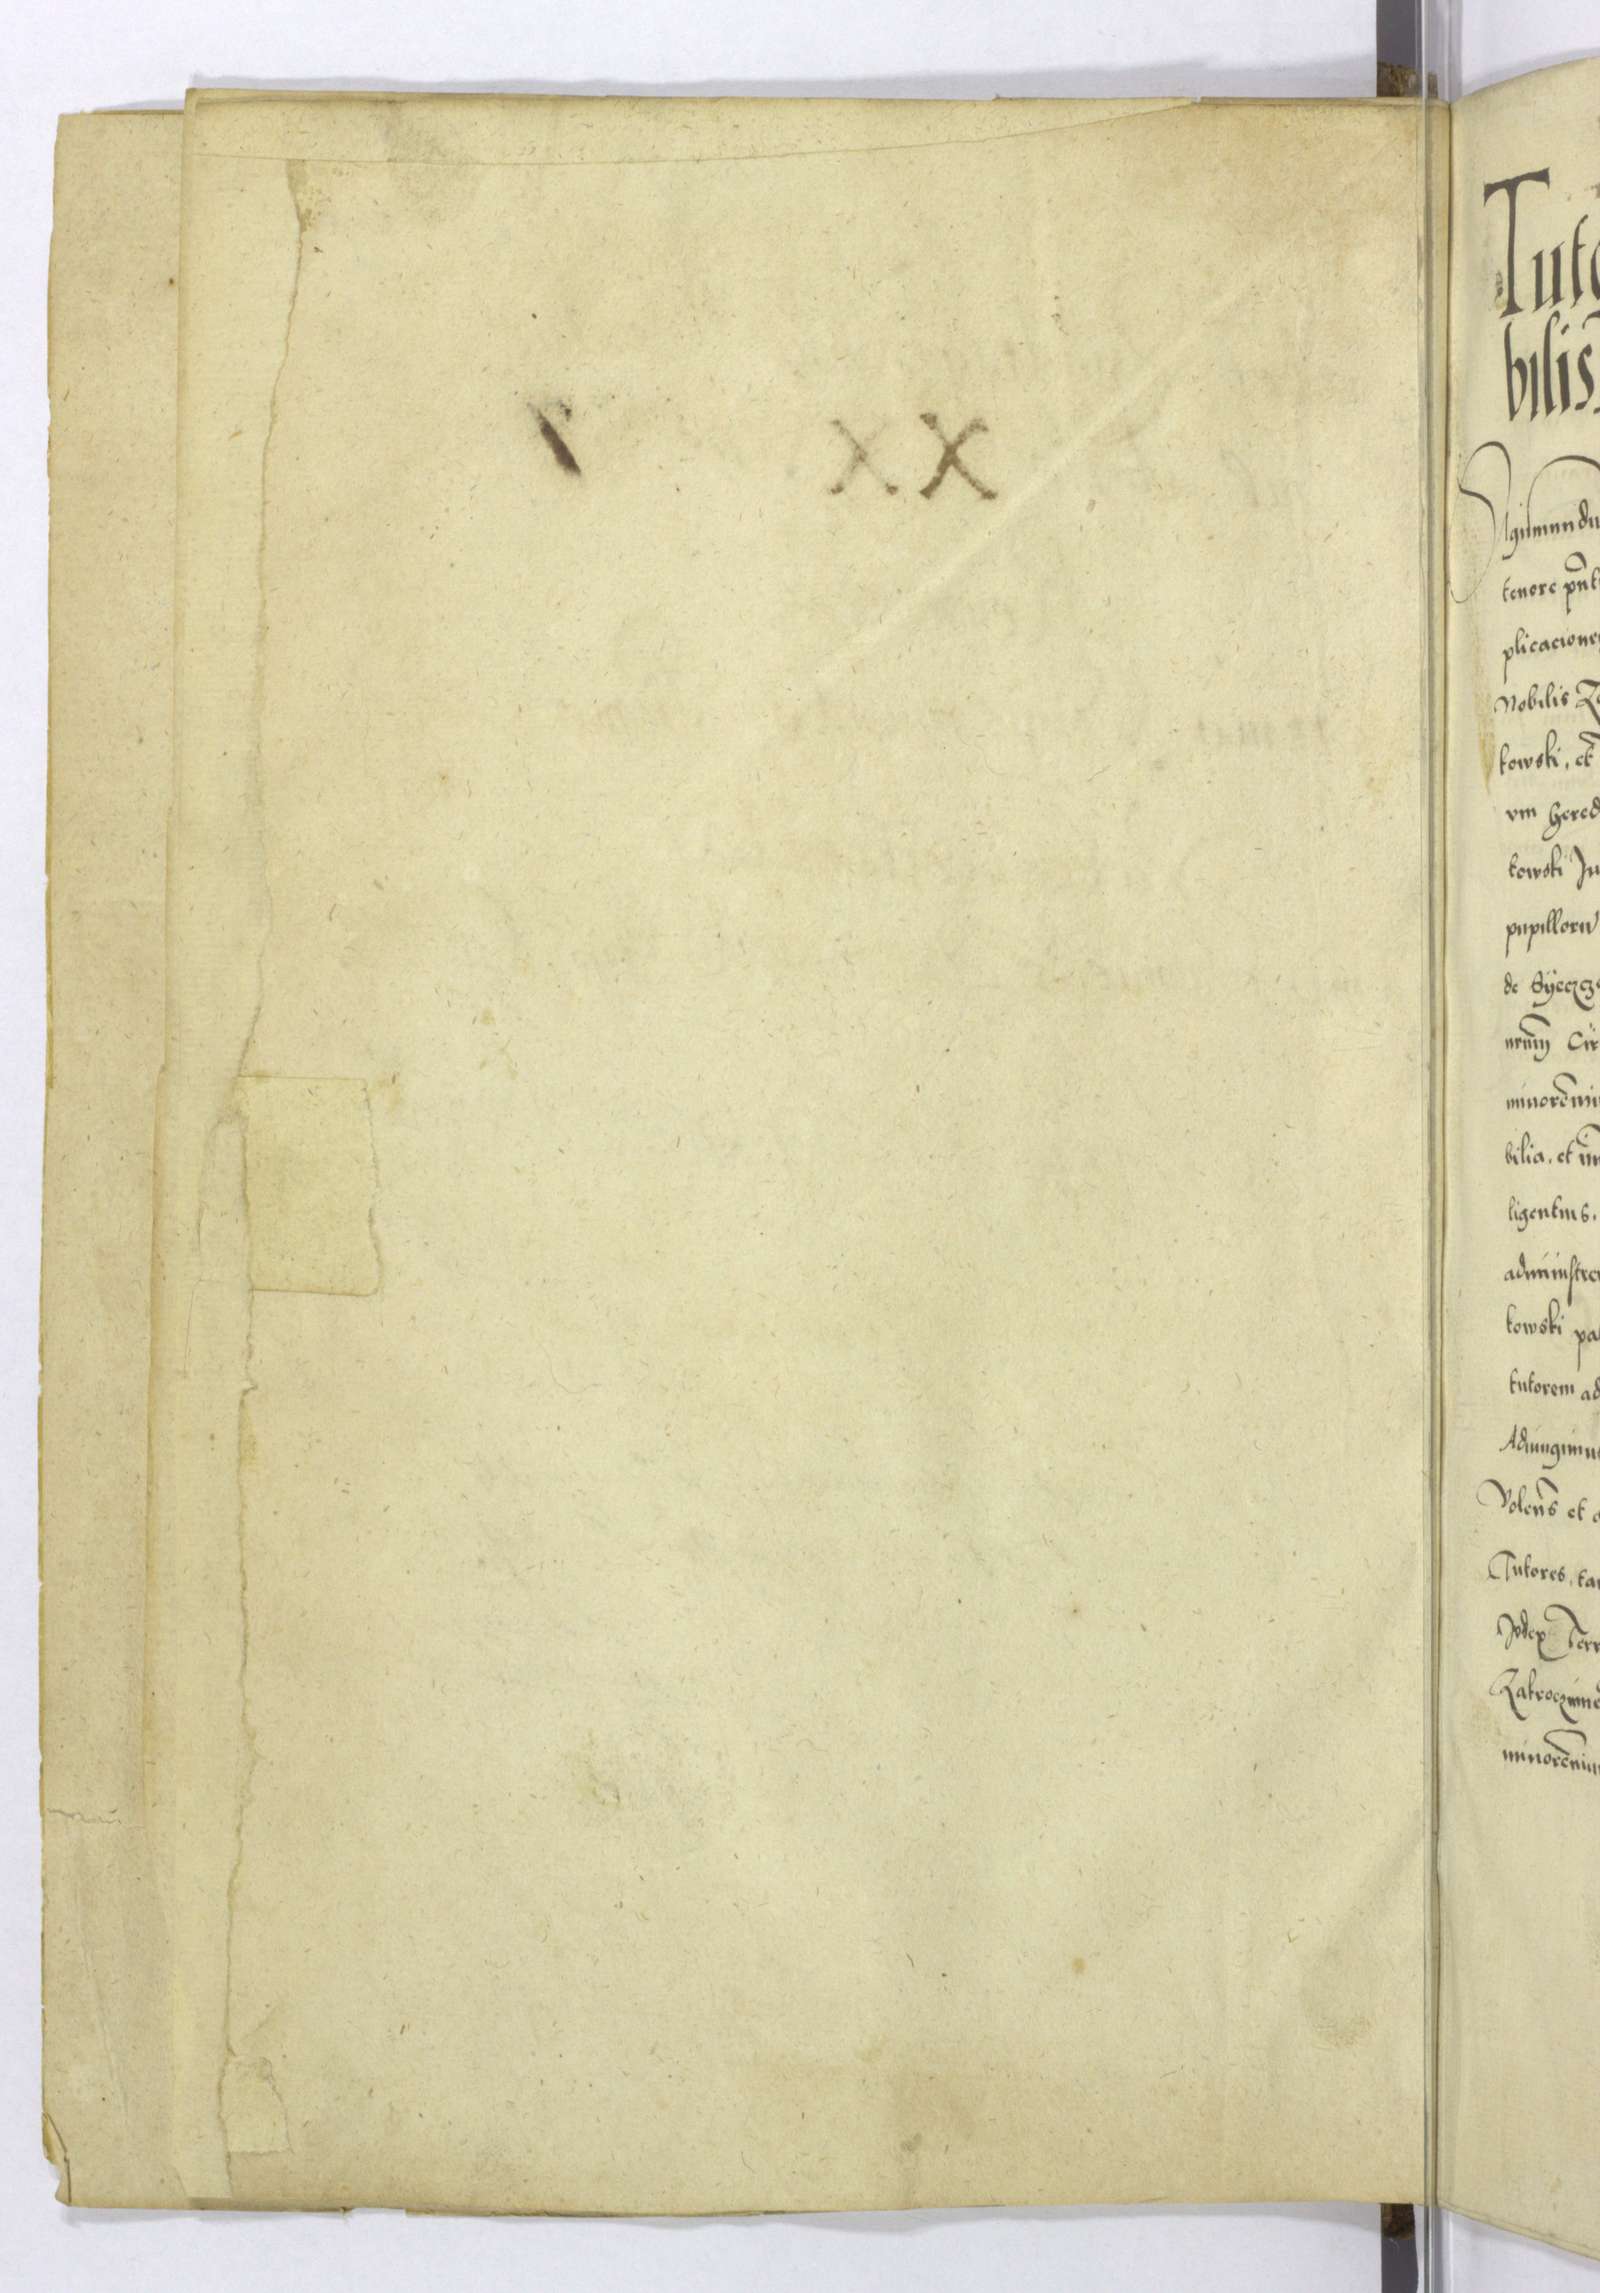 XX
Tuto
bilis
Sigismundu
tenore pnt
plicacione
Nobilis
kowski, et
vm hered
kowski Ju
pupilloru
de
nrum
minorenni
bilia. et im
ligentius.
administre
kowski pa
tutorem ad
Adiungimus
Volens et
Tutores, ta
Judex Terr
Zakroczime
minorenniu